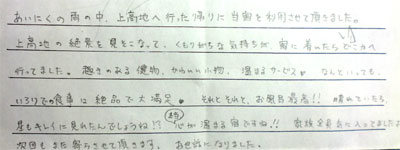 あいにくの雨の中、上高地へ行った帰りに当宿を利用させて頂きました。
上高地の絶景を見そこなって、くもりがちな気持ちが、宿に着いたらどこかへ
行ってました。趣きのある建物、かわいい小物、温まるサービス。なんといっても、
いろりでの食事は絶品で大満足。それとそれと、お風呂最高!! 晴れていたら、
星もキレイに見れたんでしょうね!? 本当心が温まる宿ですね!! 家族全員気に入ってましたよ
次回もまた寄らせて頂きます。お世話になりました。